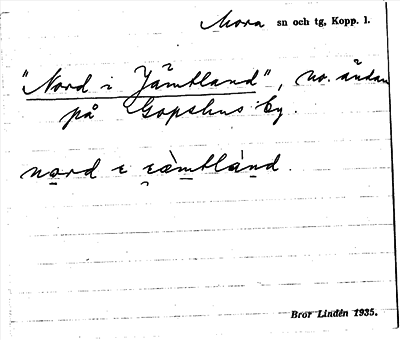 Mora sn och tg, Kopp. l.
"Nord i Jämtland", no. ändan
på Gopshus by.
nord i jàmtlànd.
Bror Lindén 1935.